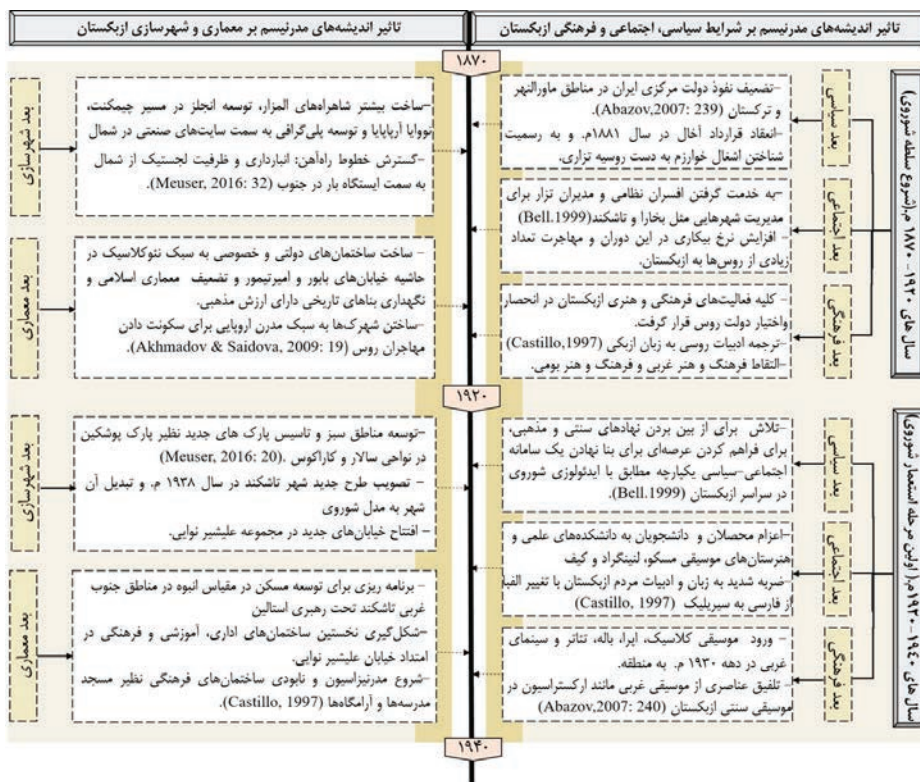 تاثیر اندیشه‌های مدرنیسم بر شرایط سیاسی، اجتماعی و فرهنگی ازبکستان
تاثیر اندیشه‌های مدرنیسم بر معماری و شهرسازی ازبکستان
۱۸۷۰
سال های ۱۹۲۰- ۱۸۷۰ م.(شروع سلطه شوروی)
بعد سیاسی
-تضعیف نفوذ دولت مرکزی ایران در مناطق ماورالنهر
و ترکستان (Abazov,2007: 239).
-انعقاد قرارداد آخال در سال ۱۸۸۱م. و به رسمیت
شناختن اشغال خوارزم به دست روسیه تزاری.
بعد اجتماعی
-به خدمت گرفتن افسران نظامی و مدیران تزار برای
مدیریت شهرهایی مثل بخارا و تاشکند(Bell.1999)
- افزایش نرخ بیکاری در این دوران و مهاجرت تعداد
زیادی از روس‌ها به ازبکستان.
بعد فرهنگی
- کلیه فعالیت‌های فرهنگی و هنری ازبکستان در انحصار
واختیار دولت روس قرار گرفت.
-ترجمه ادبیات روسی به زبان ازبکی (Castillo,1997)
-التقاط فرهنگ و هنر غربی و فرهنگ و هنر بومی.
بعد شهرسازی
-ساخت بیشتر شاهراه‌های المزار، توسعه انجلز در مسیر چیمکنت،
نووایا آرپاپایا و توسعه پلی‌گرافی به سمت سایت‌های صنعتی در شمال
-گسترش خطوط راه‌آهن: انبارداری و ظرفیت لجستیک از شمال
به سمت ایستگاه بار در جنوب (Meuser, 2016: 32).
بعد معماری
- ساخت ساختمان‌های دولتی و خصوصی به سبک نئوکلاسیک در
حاشیه خیابان‌های بابور و امیرتیمور و تضعیف معماری اسلامی و
نگهداری بناهای تاریخی دارای ارزش مذهبی.
-ساختن شهرک‌ها به سبک مدرن اروپایی برای سکونت دادن
مهاجران روس (Akhmadov & Saidova, 2009: 19).
۱۹۲۰
سال های ۱۹۴۰-۱۹۲۰م.( اولین مرحله استعمار شوروی)
بعد سیاسی
-تلاش برای از بین بردن نهادهای سنتی و مذهبی،
برای فراهم کردن عرصه‌ای برای بنا نهادن یک سامانه
اجتماعی-سیاسی یکپارچه مطابق با ایدئولوژی شوروی
در سراسر ازبکستان (Bell.1999).
بعد اجتماعی
-اعزام محصلان و دانشجویان به دانشکده‌های علمی و
هنرستان‌های موسیقی مسکو، لنینگراد و کیف
- ضربه شدید به زبان و ادبیات مردم ازبکستان با تغییر الفبا
از فارسی به سیریلیک (Castillo, 1997)
بعد فرهنگی
- ورود موسیقی کلاسیک، اپرا، باله، تئاتر و سینمای
غربی در دهه ۱۹۳۰ م. به منطقه.
- تلفیق عناصری از موسیقی غربی مانند ارکستراسیون در
موسیقی سنتی ازبکستان (Abazov,2007: 240)
بعد شهرسازی
-توسعه مناطق سبز و تاسیس پارک های جدید نظیر پارک پوشکین
در نواحی سالار و کاراکوس .(Meuser, 2016: 20)
- تصویب طرح جدید شهر تاشکند در سال ۱۹۳۸ م. و تبدیل آن
شهر به مدل شوروی
- افتتاح خیابان‌های جدید در مجموعه علیشیر نوایی.
بعد معماری
- برنامه ریزی برای توسعه مسکن در مقیاس انبوه در مناطق جنوب
غربی تاشکند تحت رهبری استالین
-شکل‌گیری نخستین ساختمان‌های اداری، آموزشی و فرهنگی در
امتداد خیابان علیشیر نوایی.
- شروع مدرنیزاسیون و نابودی ساختمان‌های فرهنگی نظیر مسجد
مدرسه‌ها و آرامگاه‌ها (Castillo, 1997).
۱۹۴۰